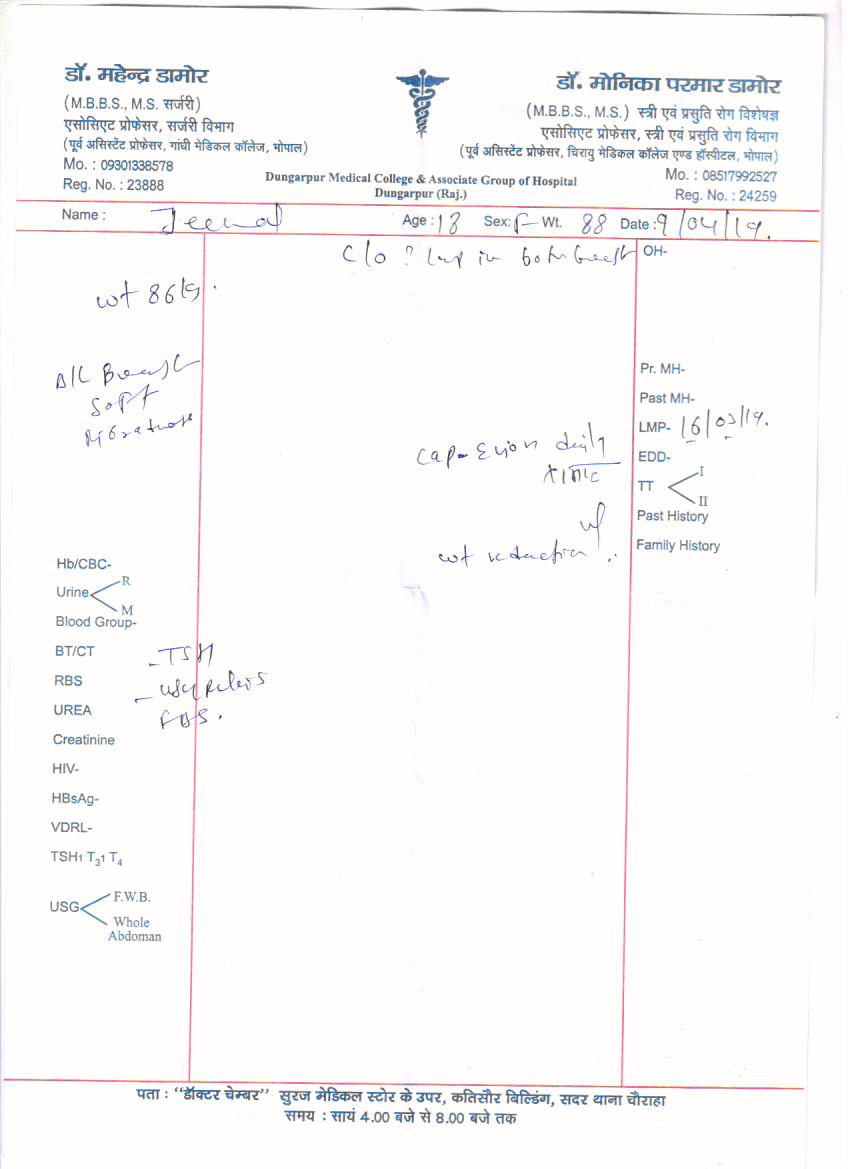 डॉ. महेन्द्र डामोर
(M.B.B.S., M.S. सर्जरी)
एसोसिएट प्रोफेसर, सर्जरी विभाग
(पूर्व असिस्टेंट प्रोफेसर, गांधी मेडिकल कॉलेज, भोपाल)
Mo. : 09301338578
Reg. No. : 23888
डॉ. मोनिका परमार डामोर
(M.B.B.S., M.S.) स्त्री एवं प्रसुति रोग विशेषज्ञ
एसोसिएट प्रोफेसर, स्त्री एवं प्रसुति रोग विभाग
(पूर्व असिस्टेंट प्रोफेसर, चिरायु मेडिकल कॉलेज एण्ड हॉस्पीटल, भोपाल)
Mo. : 08517992527
Reg. No. : 24259
Dungarpur Medical College & Associate Group of Hospital
Dungarpur (Raj.)
Name : Jeenal Age : 13 Sex: F Wt. 88 Date : 9/04/19.
C/o ? lump in both breast
wt 86
B/L Breast
soft
OH-
Pr. MH-
Past MH-
LMP- 16/03/19.
EDD-
TT I
II
Past History
Family History
Cap- Evion daily
wt reduction
Hb/CBC-
Urine R
M
Blood Group-
BT/CT
RBS
UREA
Creatinine
HIV-
HBsAg-
VDRL-
TSH1 T31 T4
USG F.W.B.
Whole
Abdoman
- TSH
- USG Pelvis
पता : “डॉक्टर चेम्बर” सुरज मेडिकल स्टोर के उपर, कतिसौर बिल्डिंग, सदर थाना चौराहा
समय : सायं 4.00 बजे से 8.00 बजे तक